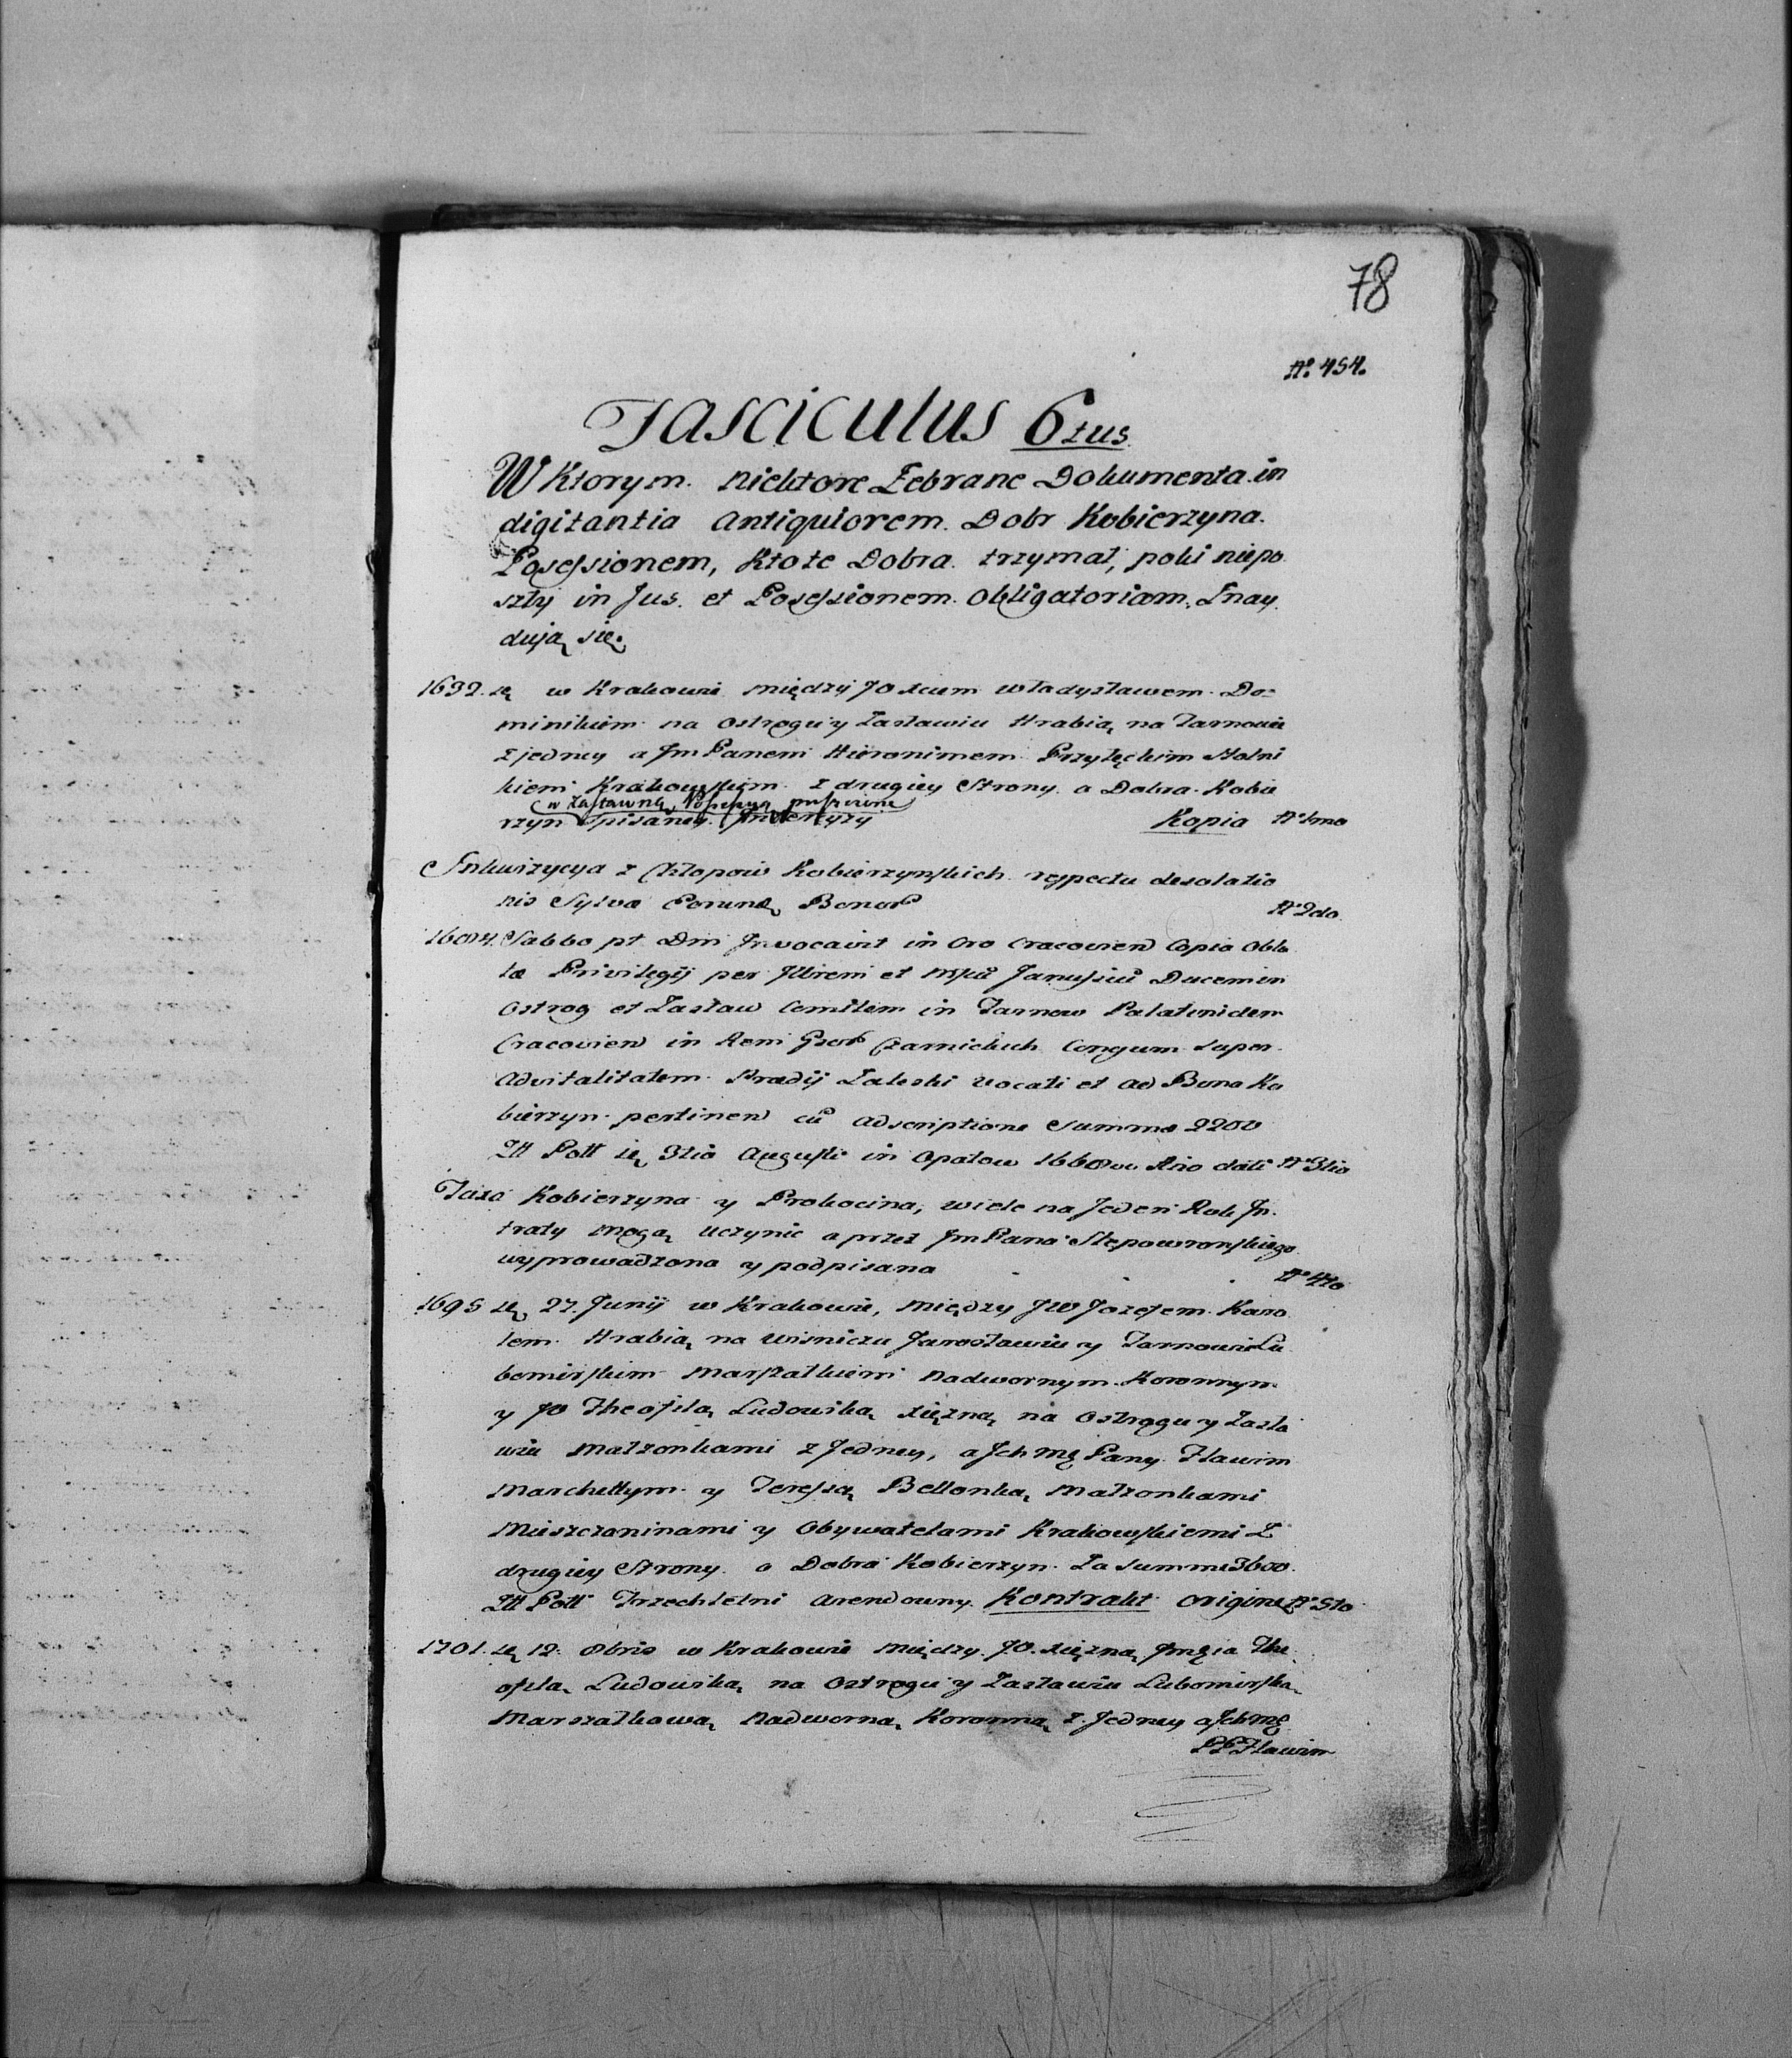 78
No. 454.
Fasciculus 6tus
W Ktorym niektore Zebrane Dokumenta in
digitantia Antiquiorem Dobr Kobierzyna
Posessionem, Kto te Dobra trzymał, poki niepo
szły in Jus et Posessionem Obligatoriam, Znay
dują się.
1632. ię w Krakowie między JO Xciem Władysławem Do=
minikiem na Ostrogu y Zasławiu Hrabią na Tarnowie
z jedney a Jm Panem Hieronimem Przyłęckim Stolni
kiem Krakowskim z drugiey Strony o Dobra Kobie
w Zastawną Possessyą puszczone
rzyn spisaney Kopia No 1mo
Inkwizycya z Chłopow Kobierzynskich respectu desolatio
nis Sylvæ Bonor No 2do
Sabbo pt Dm Invocavit in Cro Cracovien Copia Obla
tæ Privilegij per Illrem et Janussiu Ducem in
Ostrog et Zasław Comitem in Tarnow Palatiniden
Cracovien in Rem Czarnickich Congum super
Advitalitatem Prædij Zaleski vocati et ad Bona Ko
bierzyn pertinen cu adscriptione Summæ 2200
Zll Poll ię 3tia Augusti in Opatow No 3tio
Taxa Kobierzyna y Prokocina, wiele na Jeden Rok In
traty mogą uczynic a przez Jm Pana Slepowronskiego
wyprowadzona y podpisana No 4to
1695 ię 27. Junij w Krakowie, między JW Jozefem Karo
lem Hrabią na Wisniczu Jarosławiu y Tarnowie Lu
bomirskim Marszałkiem Nadwornym Koronnym
y JO Theofilą Ludowiką Xiężną na Ostrogu y Zasła
wiu Małzonkami z Jedney, a Ich Mę Pany Flawim
Marchettym y Teressą Bellonką Małzonkami
Mieszczaninami y Obywatelami Krakowskiemi z
drugiey Strony o Dobra Kobierzyn Za summe 3600
Zll Poll Trzechletni Arendowny Kontrakt origine No 5to
1701. ię 12. 8bris w Krakowie między JO. Xiężną The
ofilą Ludowiką na Ostrogu y Zasławiu Lubomirską
Marszałkową Nadworną Koronną z Jedney a Ich Mę
PP Flawim